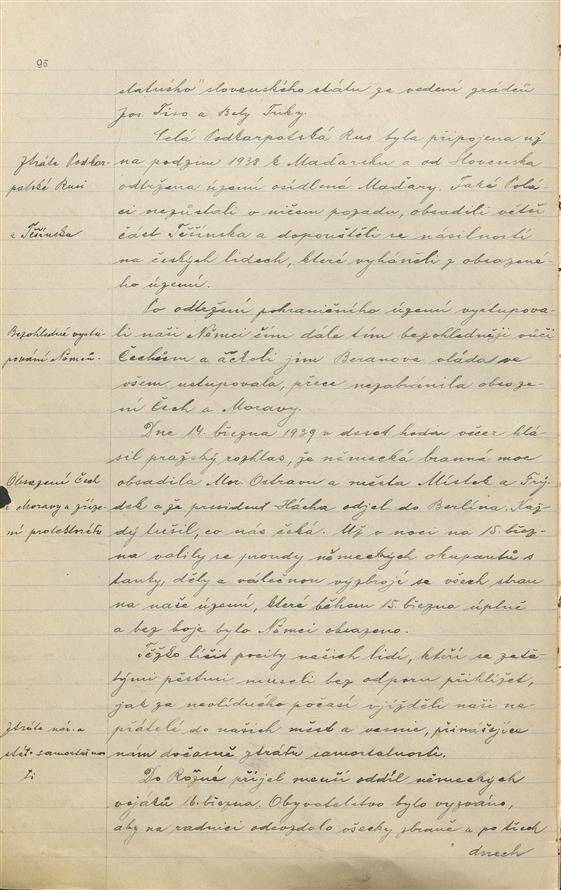 96
statného" slovenského státu za vedení zrádců
Jos. Tiso a Bely Tuky.
Celá Podkarpatská Rus byla připojena už
Ztráta Podkar-
na podzim 1938 k Maďarsku a od Slovenska
patské Rusi
odtržena území osídlená Maďary. Také Polá-
ci nezůstali v ničem pozadu, obsadili větší
a Těšínska
část Těšínska a dopouštěli se násilností
na českých lidech, které vyháněli z obsazené-
ho území.
Po odtržení pohraničního území vystupova-
Bezohledné vystu-
li naši Němci čím dále tím bezohledněji vůči
pování Němců.
Čechům a ačkoli jim Beranova vláda ve
všem ustupovala, přece nezabránila obsaze-
ní Čech a Moravy.
Dne 14. března 1939 v deset hodin večer hlá-
sil pražský rozhlas, že německá branná moc
Obsazení Čech
obsadila Mor. Ostravu a města Místek a Frý-
a Moravy a zříze-
dek a že president Hácha odjel do Berlína. Kaž-
ní protektorátu
dý tušil, co nás čeká. Už v noci na 15. břez-
na valily se proudy německých okupantů s
tanky, děly a válečnou výzbrojí se všech stran
na naše území, které během 15. března úplně
a bez boje bylo Němci obsazeno.
Těžko líčit pocity našich lidí, kteří se zatě-
tými pěstmi museli bez odporu přihlížet,
jak za neoblíduého počasí vjížděli naši ne-
Ztráta nár. a
přátelé do našich měst a vesnic, přinášejíce
stát. samostatnos-
nám dočasně ztrátu samostatnosti.
ti
Do Rožné přijel menší oddíl německých
vojáků 16. března. Obyvatelstvo bylo vyzváno,
aby na radnici odevzdalo všecky zbraně a po třech
dnech